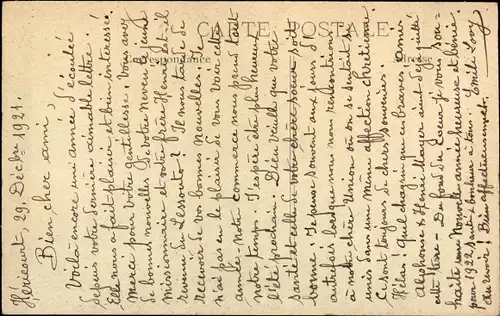 CARTE POSTALE
Correspondance
Adresse
Héricourt, 29. Décbre 1921.
Bien cher ami,
Voilà encore une année d'écoulée
depuis votre dernière aimable lettre!
Elle nous a fait plaisir et bien intéressé.
Merci pour votre gentillesse. Vous avez
de bonnes nouvelles de votre neveu le jeune
missionnaire et votre frère Henri est-il
revenu du Lessouto? Il nous tarde de
recevoir de vos bonnes nouvelles. Je
n'ai pas eu le plaisir de vous voir cette
année. notre commerce nous prend tout
notre temps. J'espère être plus heureux
l'été prochain. Dieu veuille que votre
santé et celle de votre chère sœur soit
bonne! Je pense souvent aux jours d'
autrefois lorsque nous nous rencontrions
à notre chère Union où on se sentait si
unis dans une même affection chrétienne
Ce sont toujours de chers souvenirs.
Hélas! Quel chagrin que ces braves amis
Alphonse & Henri Mayer aient déjà quitté
cette terre — Du fond du Cœur je vous sou-
haite une Nouvelle année heureuse et bénie.
pour 1922 santé & bonheur à tous. Emile Lovy
au revoir! Bien affectueusement.